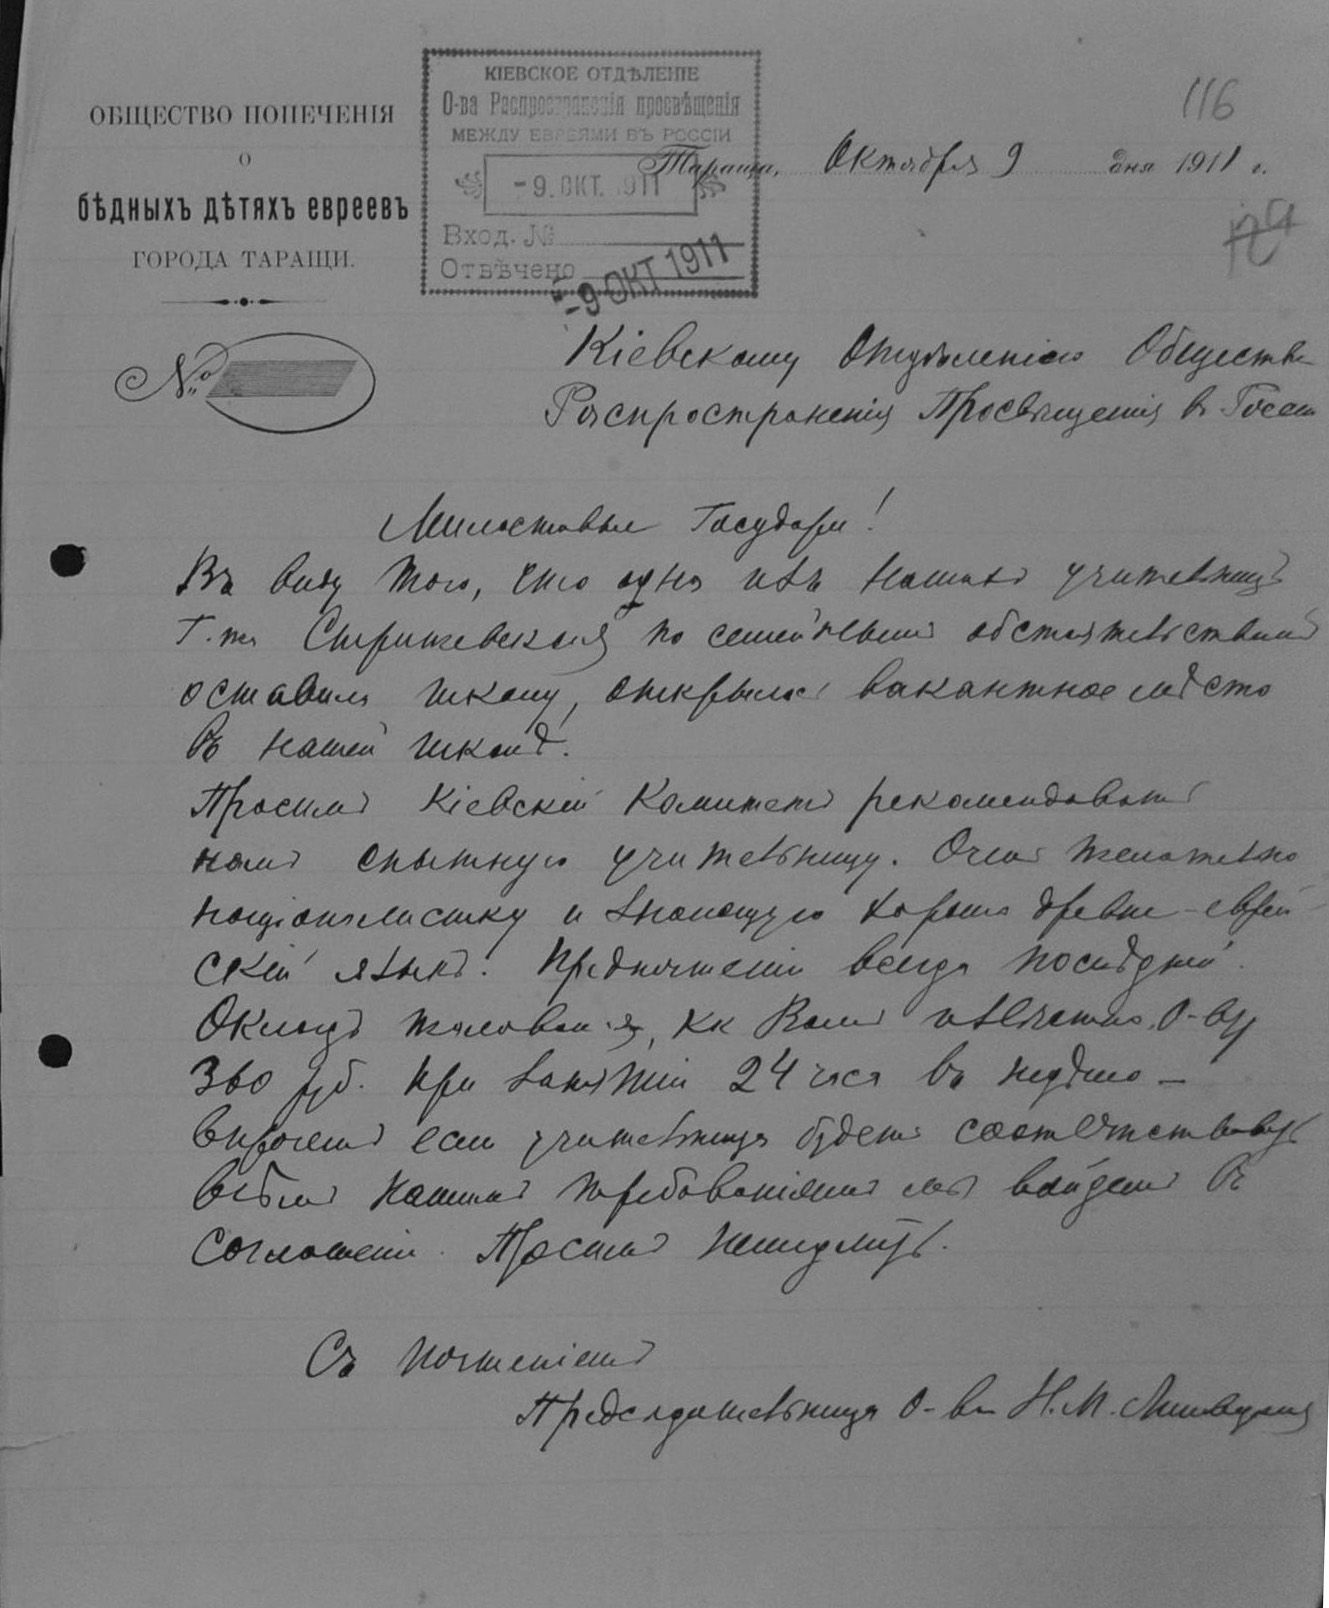 ОБЩЕСТВО ПОПЕЧЕНІЯ
О
бѢдныхъ дѢтяхъ евреевъ
ГОРОДА ТАРАЩИ.
№
КІЕВСКОЕ ОТДѢЛЕНІЕ
О-ва Распространенія просвѣщенія
МЕЖДУ ЕВРЕЯМИ ВЪ РОССІИ
-9. ОКТ. 1911
Вход. №
Отвѣчено
-9 ОКТ 1911
116
Тараща, Октября 9 дня 1911 г.
Кіевскому Отдѣленію Общества
Распространенія Просвѣщенія в Россіи
Милостивые Государи!
Въ виду того, что одна изъ нашихъ учительницъ
Г-жа по семейнымъ обстоятельствамъ
оставила школу, открылось вакантное мѣсто
въ нашей школѣ.
Просимъ Кіевскій Комитетъ рекомендовать
намъ опытную учительницу. Очень желательно
націоналистку и знающую хорошо древне-еврей
скій языкъ. Предпочтеніе всегда послѣдней.
Окладъ жалованія, кк Вамъ извѣстно, О-ву
360 руб. при занятіи 24 часа въ недѣлю –
впрочемъ если учительница будетъ соотвѣтствовать
всѣмъ нашимъ требованіямъ мы войдемъ въ
соглашеніе. Просимъ немедлить.
Съ почтеніемъ
Предсѣдательница О-ва Н. М.